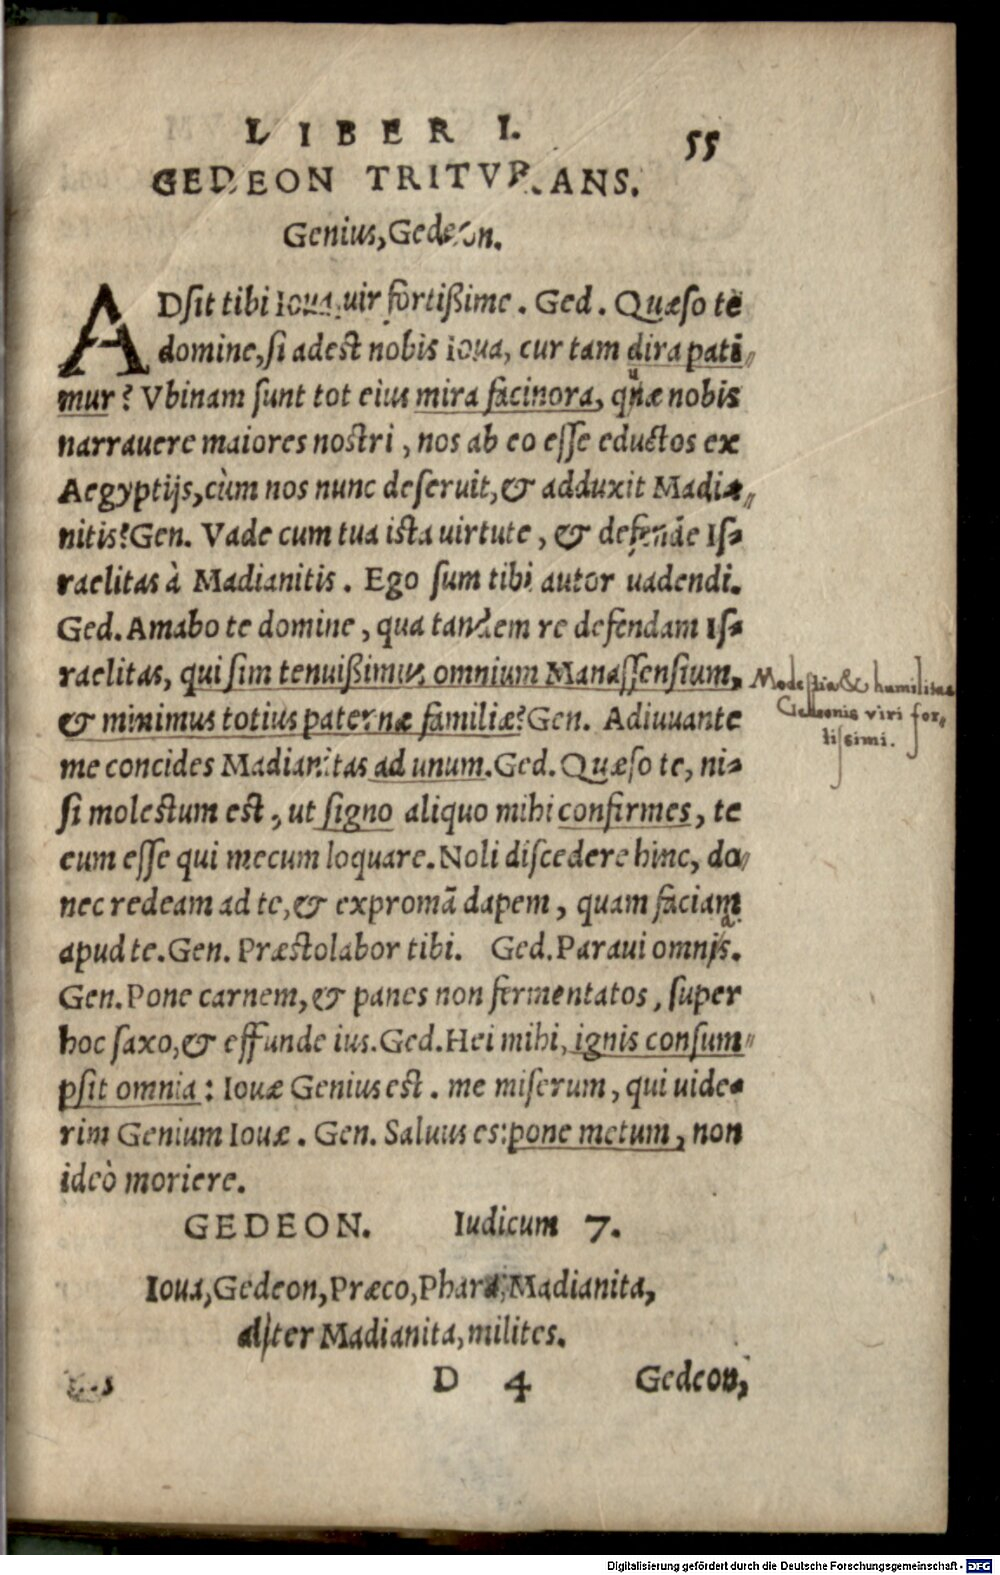 LIBER I. 55
GEDEON TRITVRANS.
Genius, Gedeon.
ADsit tibi Ioua, uir fortißime. Ged. Quæso te
domine, si adest nobis Ioua, cur tam dira pati⸗
mur? Vbinam sunt tot eius mira facinora, quæ nobis
narrauere maiores nostri, nos ab eo esse eductos ex
Aegyptijs, cùm nos nunc deseruit, & adduxit Madia⸗
nitis? Gen. Vade cum tua ista uirtute, & defende Is⸗
raelitas à Madianitis. Ego sum tibi autor uadendi.
Ged. Amabo te domine, qua tandem re defendam Is⸗
raelitas, qui sim tenuißimus omnium Manassensium,
& minimus totius paternæ familiæ? Gen. Adiuuante
me concides Madianitas ad unum. Ged. Quæso te, ni⸗
si molestum est, ut signo aliquo mihi confirmes, te
eum esse qui mecum loquare. Noli discedere hinc, do⸗
nec redeam ad te, & expromã dapem, quam faciam
apud te. Gen. Præstolabor tibi. Ged. Paraui omnis.
Gen. Pone carnem, & panes non fermentatos, super
hoc saxo, & effunde ius. Ged. Hei mihi, ignis consum⸗
psit omnia: Iouæ Genius est. me miserum, qui uide⸗
rim Genium Iouæ. Gen. Saluus es: pone metum, non
ideò moriere.
GEDEON. Iudicum 7.
Ioua, Gedeon, Præco, Phara, Madianita,
alter Madianita, milites.
D 4 Gedeon,
Modestia & humilitas
Gedeonis viri for⸗
tissimi.
Digitalisierung gefördert durch die Deutsche Forschungsgemeinschaft - DFG